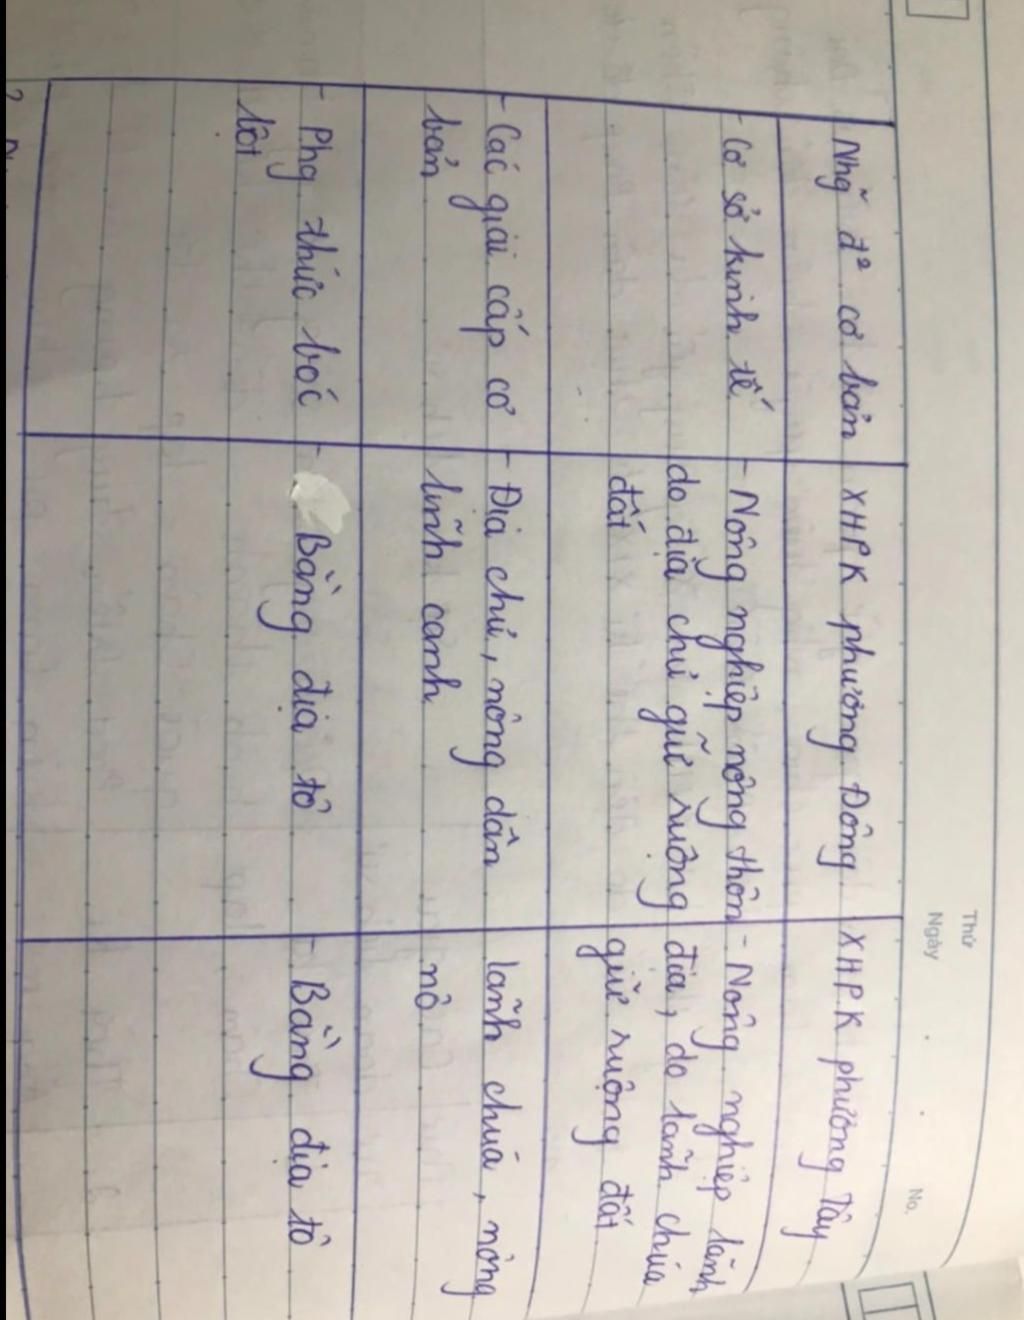 Thứ
Ngày
No.
Nhg̃ đ² cơ bản
XHPK phương Đông
XHPK phương Tây
- Cơ sở kinh tế
- Nông nghiệp nông thôn
do địa chủ giữ ruộng
đất
- Nông nghiệp lãnh
địa, do lãnh chúa
giữ ruộng đất
- Các giai cấp cơ
bản
- Địa chủ, nông dân
lĩnh canh
lãnh chúa, nông
nô
- Phg thức bóc
lột
- Bằng địa tô
- Bằng địa tô